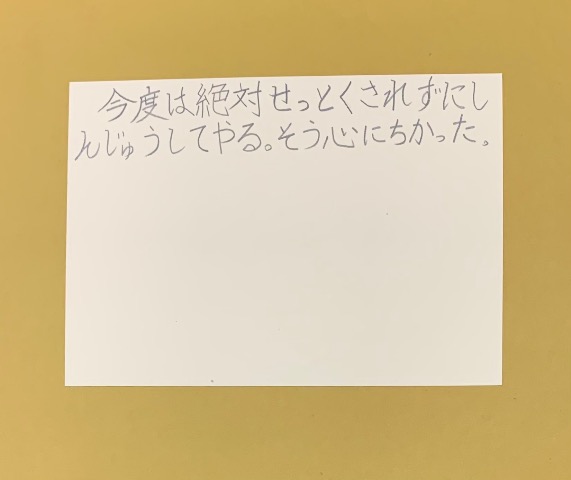 今度は絶対せっとくされずにし
んじゅうしてやる。そう心にちかった。